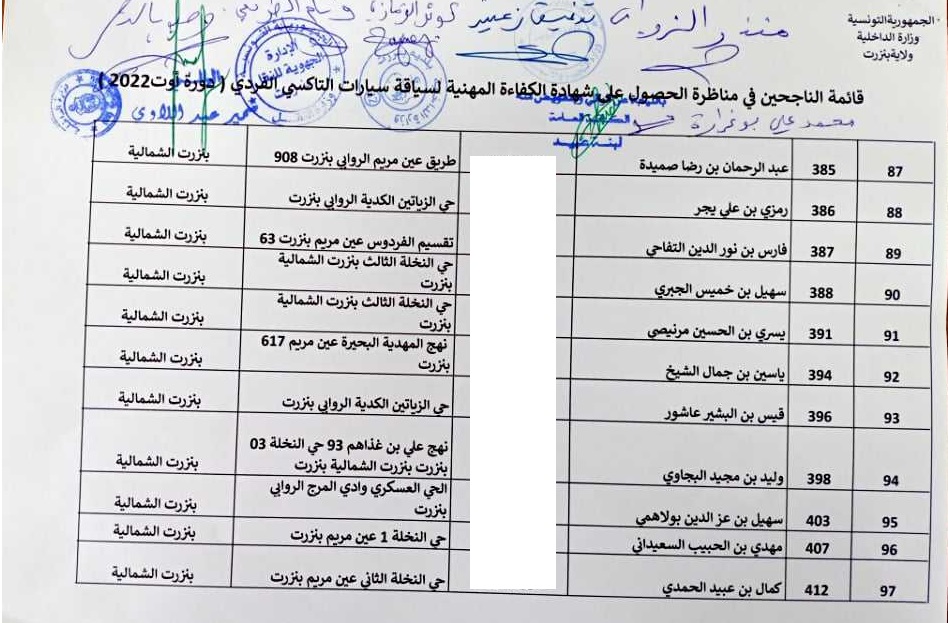 الجمهورية التونسية
وزارة الداخلية
ولاية بنزرت
قائمة الناجحين في مناظرة الحصول على شهادة الكفاءة المهنية لسياقة سيارات التاكسي الفردي ( دورة أوت2022 )
محمد علي بوغرارة
سمير عبد اللاوي
الإدارة
الجهوية للنقل
الكاتبة العامة
87 385 عبد الرحمان بن رضا صميدة طريق عين مريم الروابي بنزرت 908 بنزرت الشمالية
88 386 رمزي بن علي يجر حي الزياتين الكدية الروابي بنزرت بنزرت الشمالية
89 387 فارس بن نور الدين التفاحي تقسيم الفردوس عين مريم بنزرت 63 بنزرت الشمالية
90 388 سهيل بن خميس الجبري حي النخلة الثالث بنزرت الشمالية
بنزرت بنزرت الشمالية
91 391 يسري بن الحسين مرنيصي حي النخلة الثالث بنزرت الشمالية
بنزرت بنزرت الشمالية
92 394 ياسين بن جمال الشيخ نهج المهدية البحيرة عين مريم 617
بنزرت بنزرت الشمالية
93 396 قيس بن البشير عاشور حي الزياتين الكدية الروابي بنزرت بنزرت الشمالية
94 398 وليد بن مجيد البجاوي نهج علي بن غذاهم 93 حي النخلة 03
بنزرت بنزرت الشمالية بنزرت بنزرت الشمالية
95 403 سهيل بن عز الدين بولاهمي الحي العسكري وادي المرج الروابي
بنزرت بنزرت الشمالية
96 407 مهدي بن الحبيب السعيداني حي النخلة 1 عين مريم بنزرت بنزرت الشمالية
97 412 كمال بن عبيد الحمدي حي النخلة الثاني عين مريم بنزرت بنزرت الشمالية